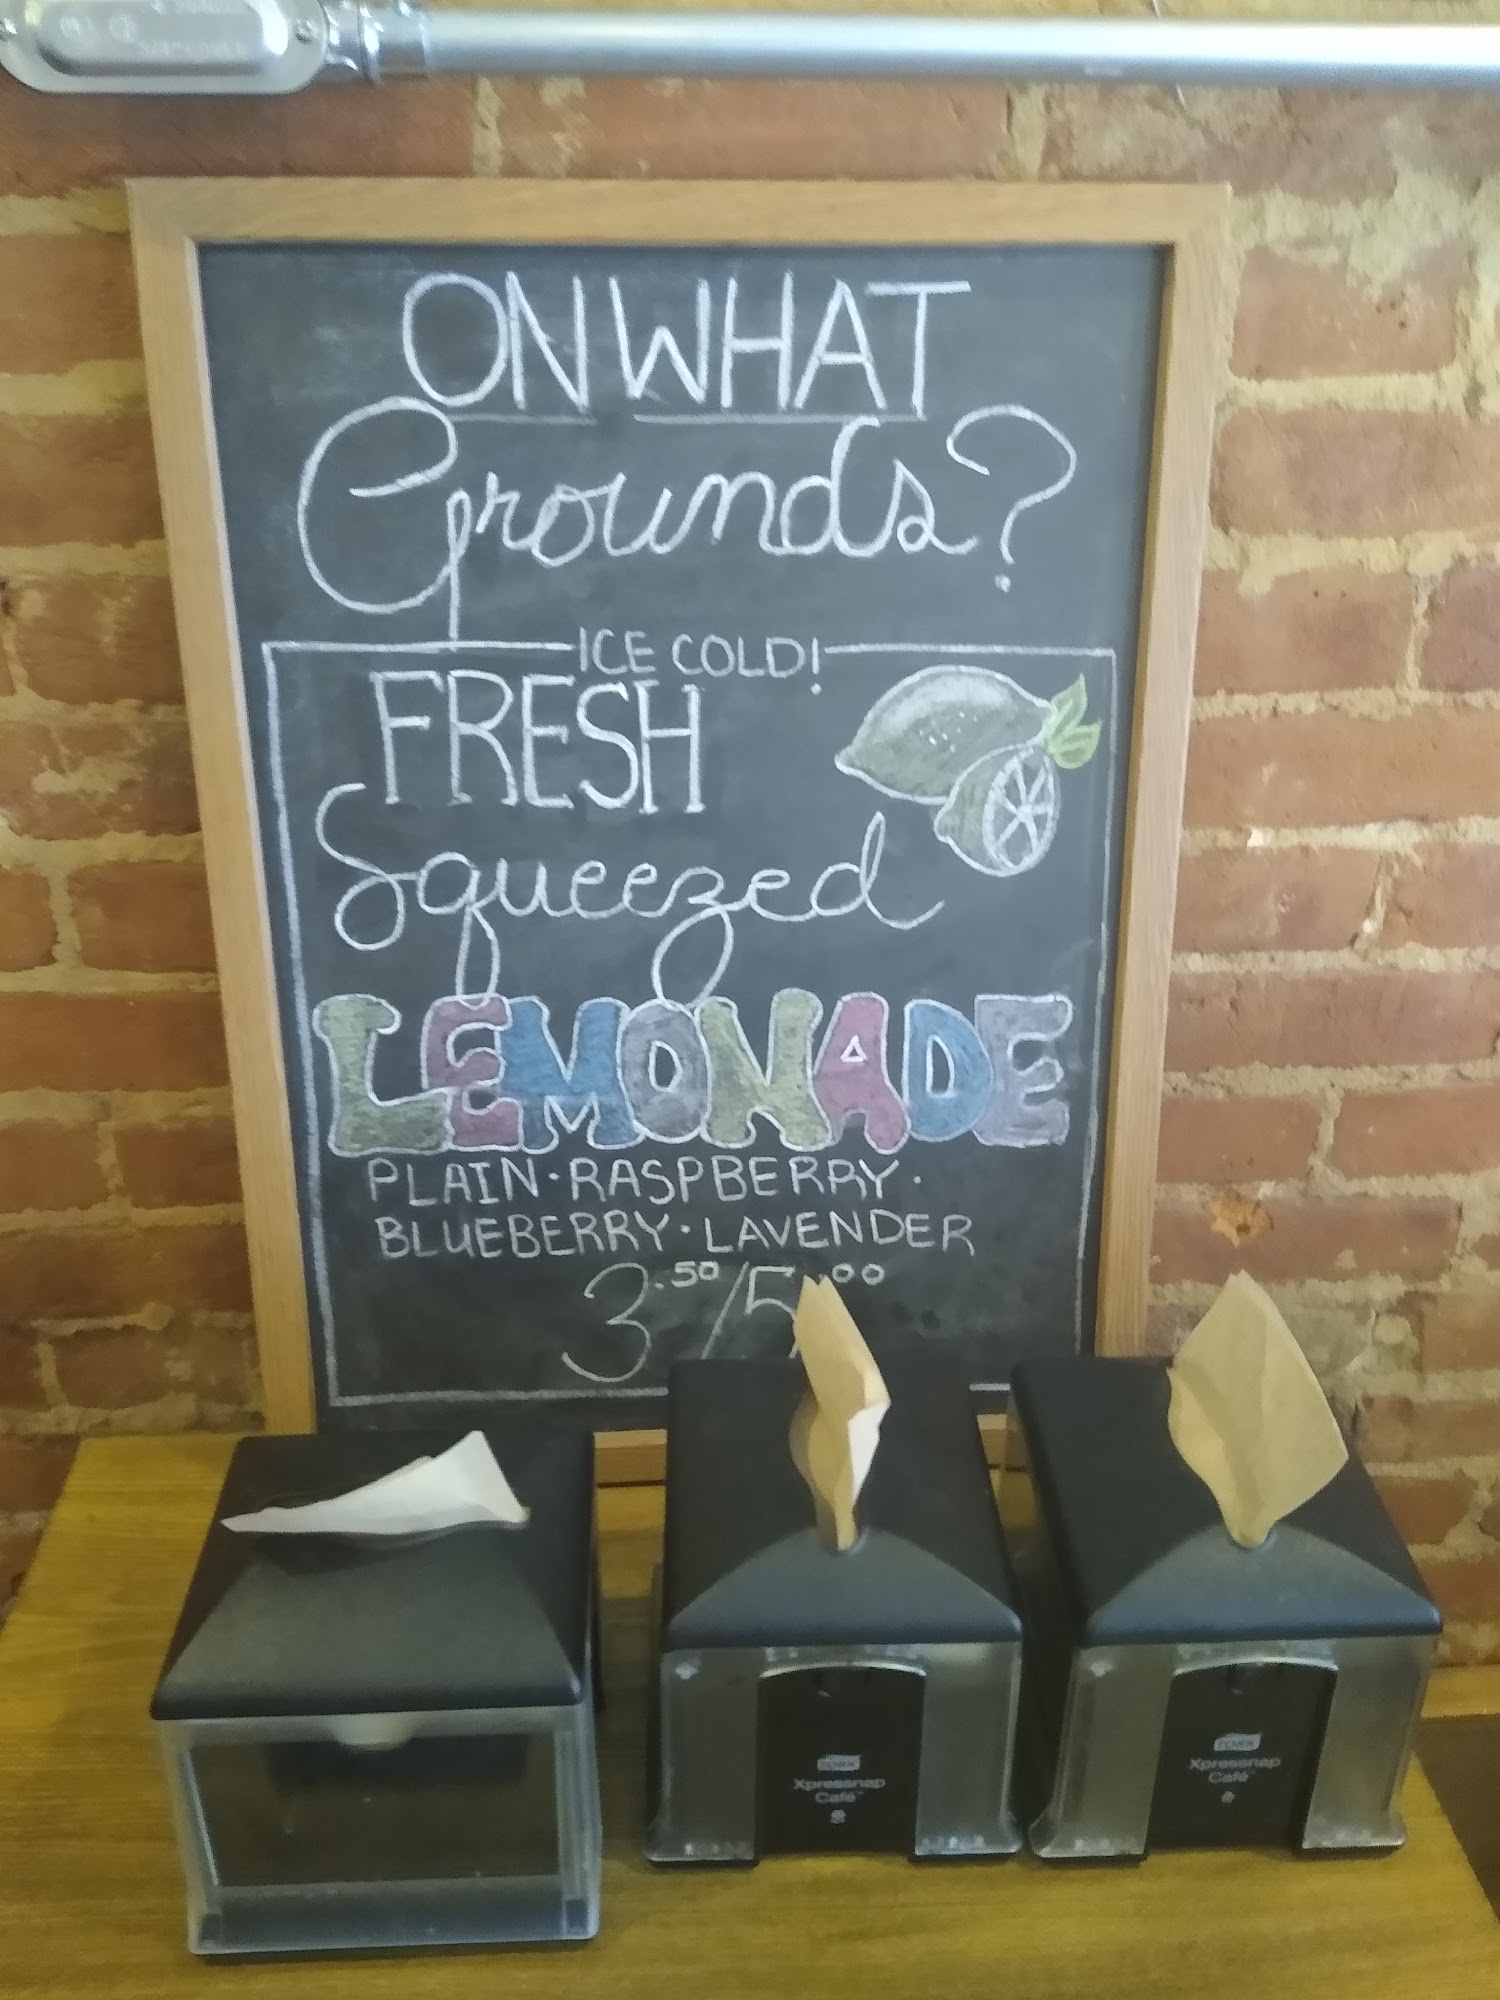 ON WHAT
Grounds?
ICE COLD!
FRESH
Squeezed
LEMONADE
PLAIN · RASPBERRY ·
BLUEBERRY · LAVENDER
3.50/5.00
TORK
Xpressnap
Café™
TORK
Xpressnap
Café™